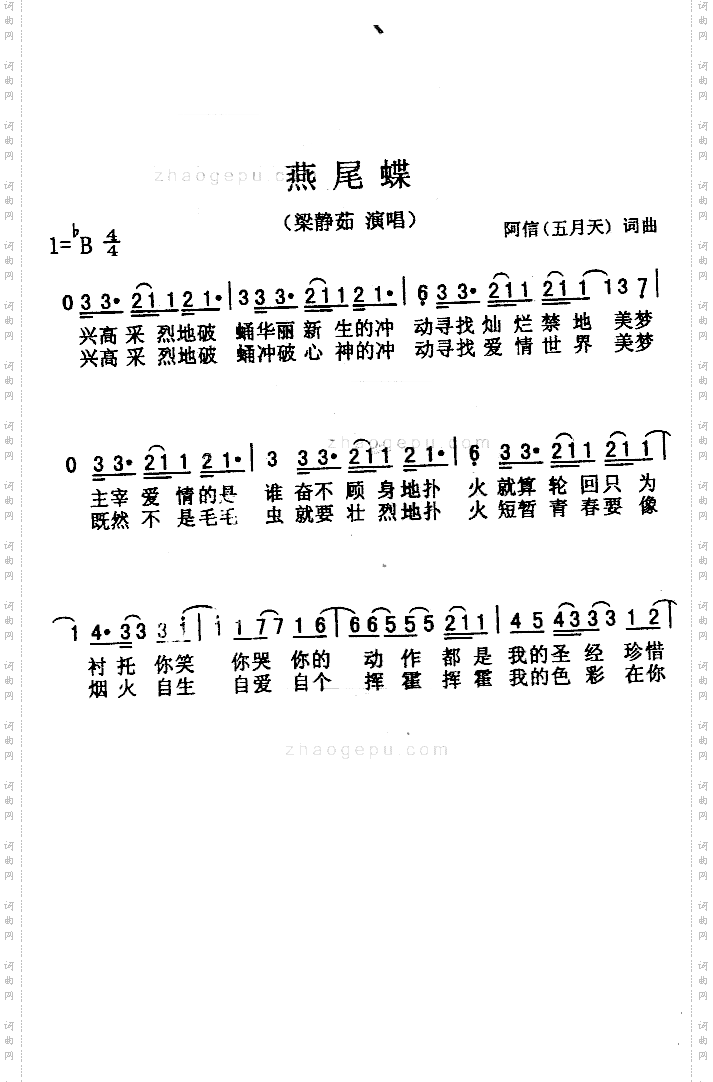 燕尾蝶
(梁静茹 演唱)
1=♭B 4/4
阿信(五月天) 词曲
0 3 3· 2 1 1 1 2 1· | 3 3 3 3· 2 1 1 1 2 1· | 6 3 3· 2 1 1 2 1 1 1 3 7 |
兴高采烈地破 蛹华丽新生的冲 动寻找灿烂禁地 美梦
兴高采烈地破 蛹冲破心神的冲 动寻找爱情世界 美梦
0 3 3· 2 1 1 2 1· | 3 3 3· 2 1 1 2 1· | 6 3 3· 2 1 1 2 1 1 1
主宰爱情的是 谁奋不顾身地扑 火就算轮回只为
既然不是毛毛 虫就要壮烈地扑 火短暂青春要像
1 4· 3 3 3 1 | 1 1 7 7 1 6 | 6 6 5 5 5 5 2 1 1 | 4 5 4 3 3 3 1 2
衬托你笑 你哭你的 动作都是我的圣经珍惜
烟火自生 自爱自个 挥霍挥霍我的色彩在你
zhaogepu.com
zhaogepu.com
zhaogepu.com
词曲网